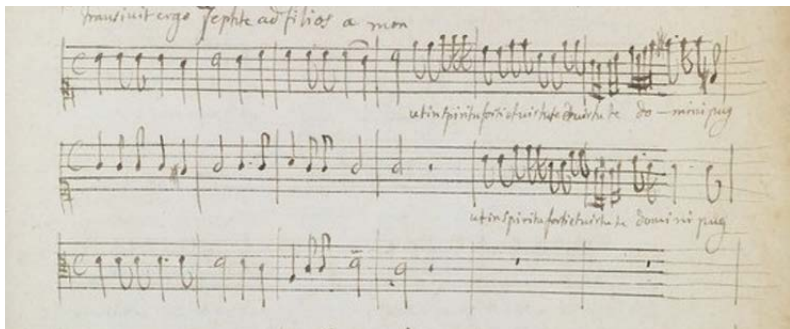 transivit ergo Jephte ad filios a mon
ut in spiritu forti et virtute et virtute do – mini pug
ut in spiritu forti et virtute domini pug